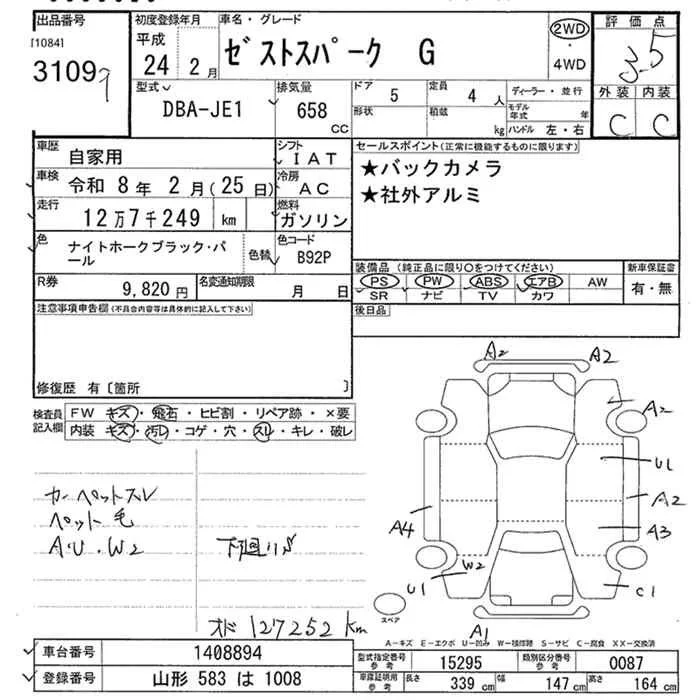 出品番号 初度登録年月 車名・グレード 評価点
[1084] 平成 ゼストスパーク G 2WD 3.5
3109 24 2月 ・4WD
型式 排気量 ドア 定員 ディーラー・並行 外装 内装
DBA-JE1 658 CC 5 4人 C C
形状 積載 kg モデル年式 年
ハンドル 左・右
車歴 自家用 シフト IAT セールスポイント(正常に機能するものに限ります)
車検 令和 8年 2月(25日) 冷房 AC ★バックカメラ
走行 12万7千249 km 燃料 ガソリン ★社外アルミ
色 ナイトホークブラック・パール 色替 色コード B92P
装備品 (純正品に限り○をつけてください) 新車保証書
R券 9,820円 名変通知期限 月 日 PS PW ABS エアB AW 有・無
SR ナビ TV カワ
注意事項申告欄(不具合内容等は具体的に記入して下さい) 後日品
修復歴 有〔箇所 〕
検査員記入欄 FW キズ・飛石・ヒビ割・リペア跡・×要
内装 キズ・汚レ・コゲ・穴・スレ・キレ・破レ
カーペットスレ
ペット毛
A.U.W2 下廻りS
オド 127252 km
A2 A2
A2
U1
A2
A4 A3
W2
U1 C1
スペア
A1
A-キズ E-エクボ U-凹み W-補修跡 S-サビ C-腐食 XX-交換済
車台番号 1408894
型式指定番号 参考 15295 類別区分番号 参考 0087
登録番号 山形 583 は 1008
車庫証明用 参考 長さ 339 cm 幅 147 cm 高さ 164 cm